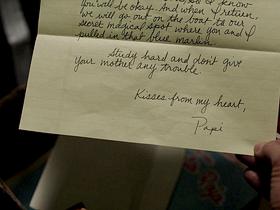 I know
you'll be okay. And when I return,
we will go out on the boat to our
secret magical spot where you and I
pulled in that blue marlin.
Study hard and don't give
your mother any trouble.
Kisses from my heart,
Papi